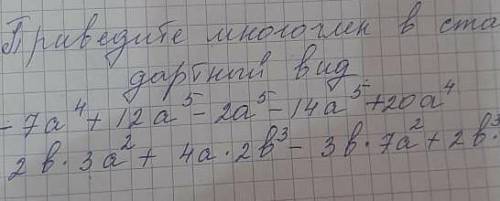 Приведите многочлен в ста
дартный вид
- 7a⁴ + 12a⁵ - 2a⁵ - 14a⁵ + 20a⁴
2b · 3a² + 4a · 2b³ - 3b · 7a² + 2b³ ·